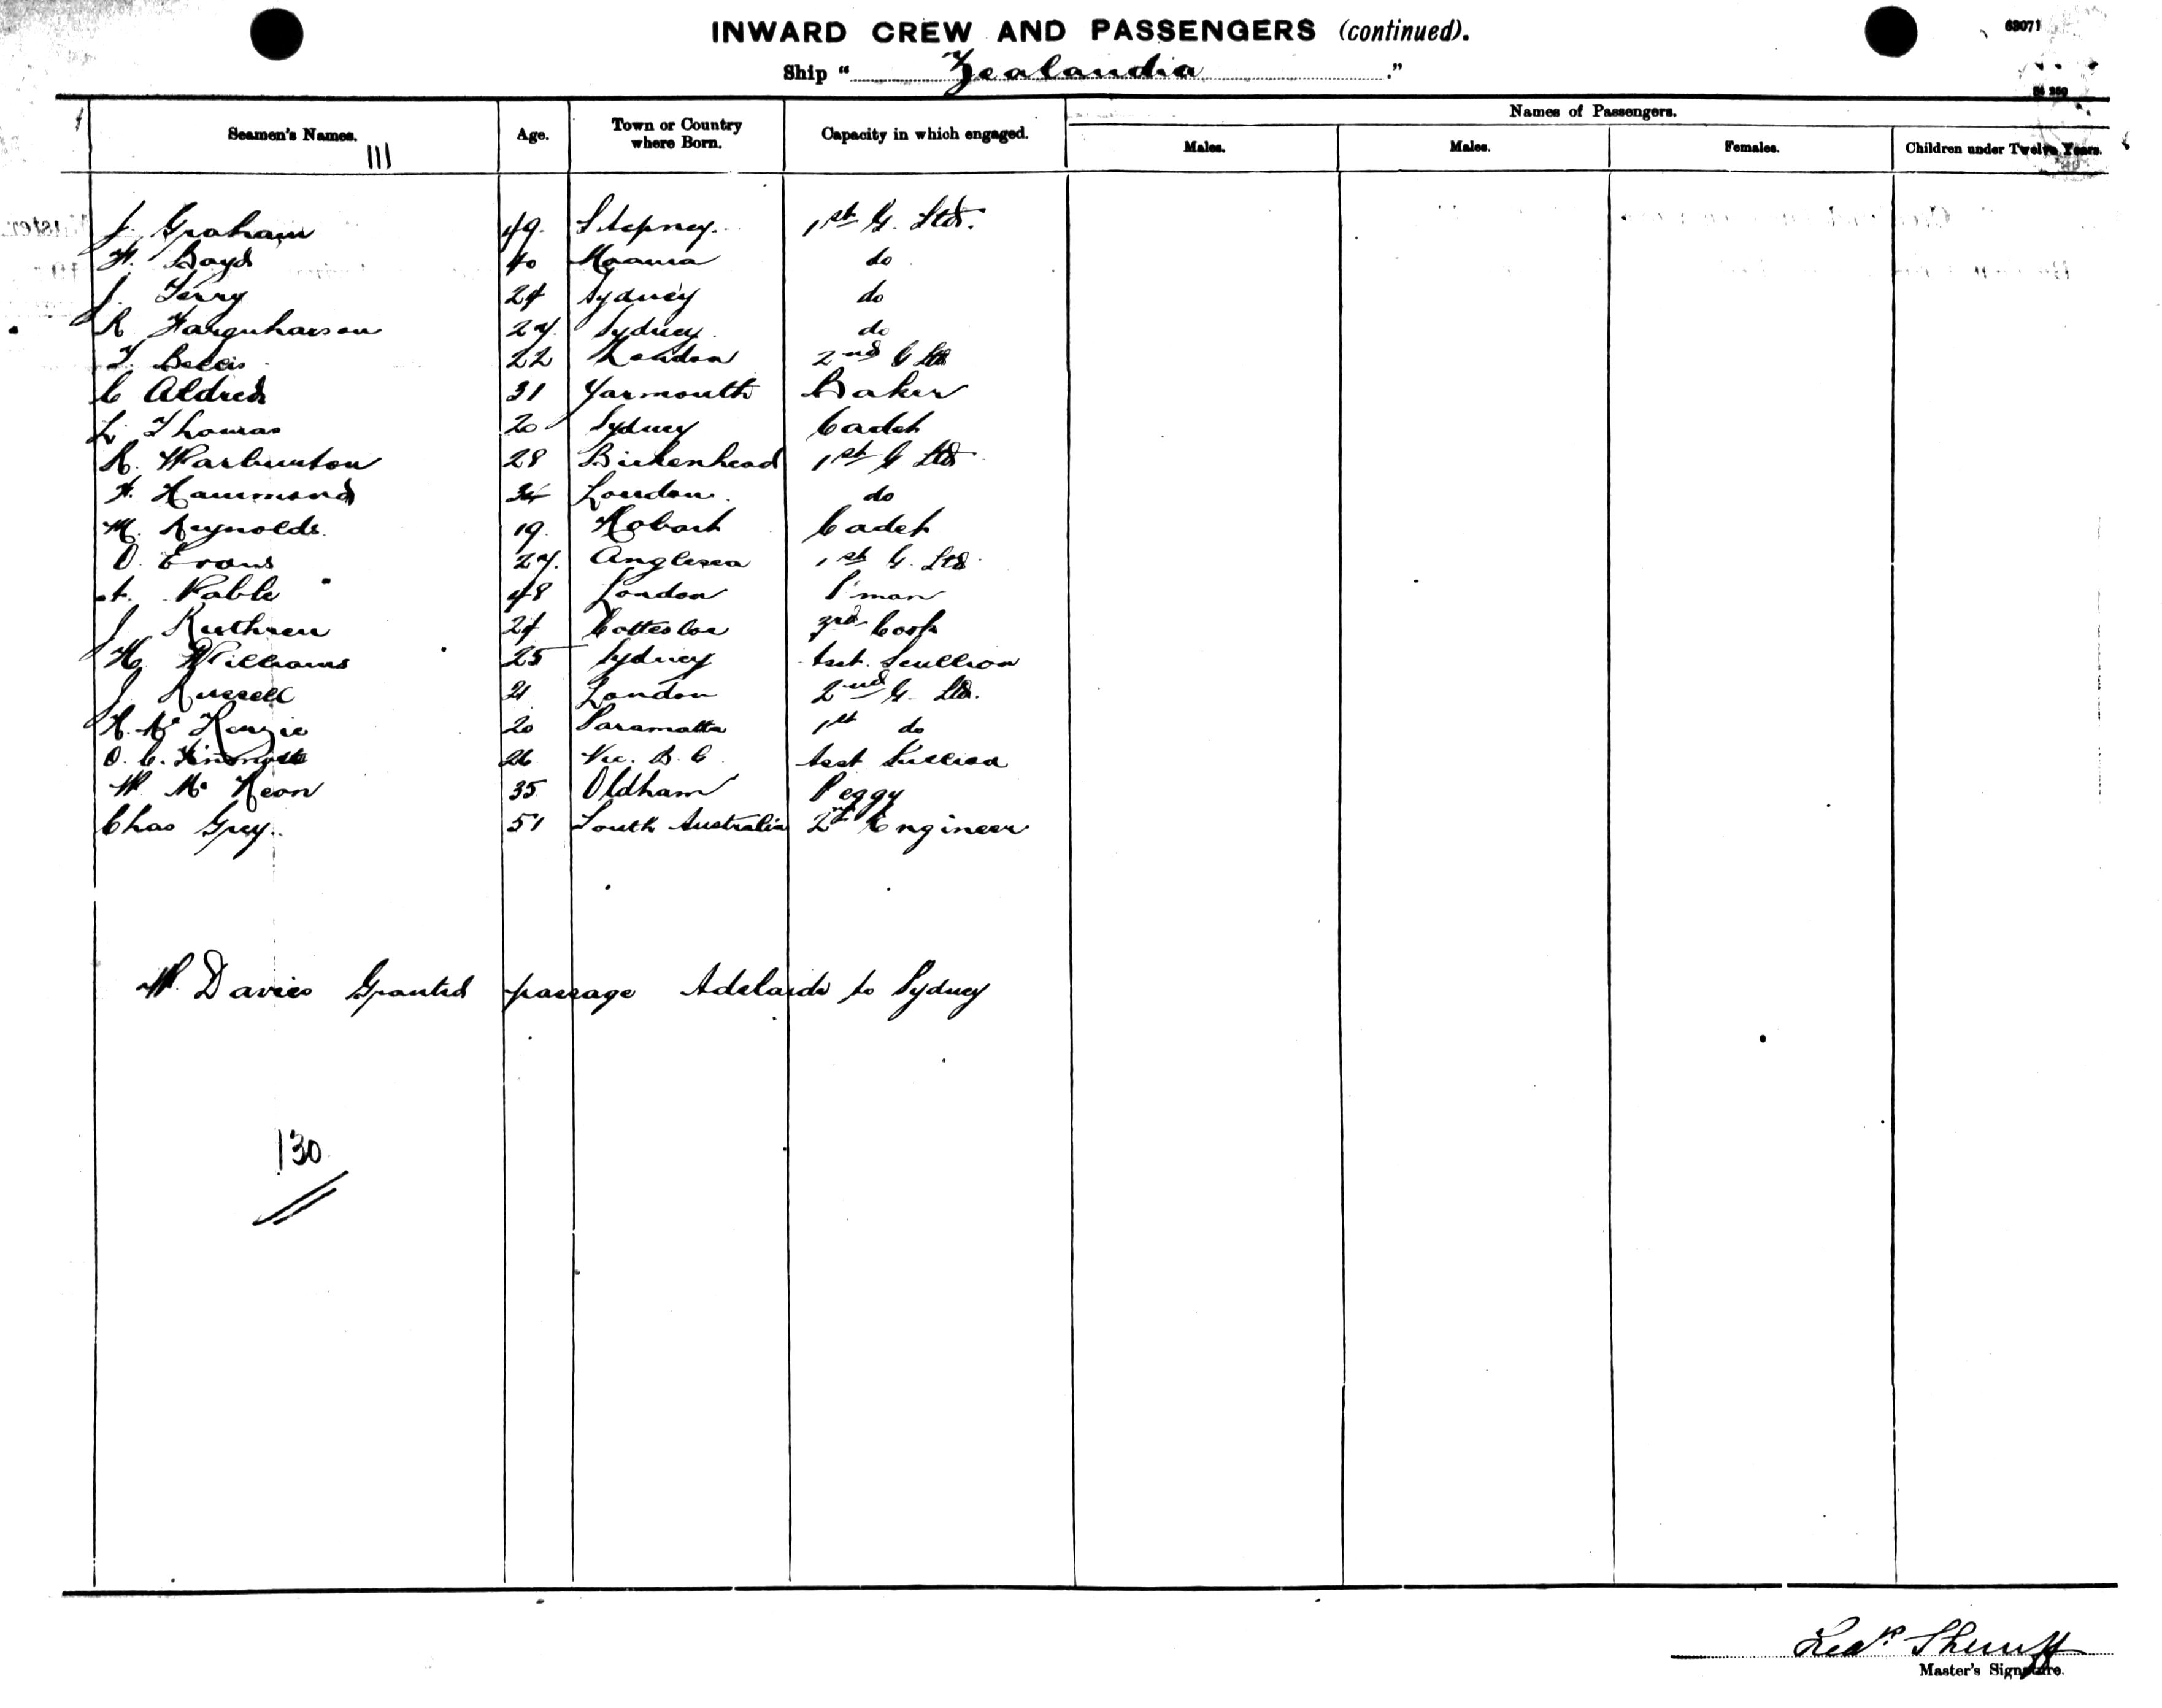 INWARD CREW AND PASSENGERS (continued).
63071
Ship " Zealandia ."
Names of Passengers.
Seamen's Names. Age. Town or Country where Born. Capacity in which engaged. Males. Males. Females. Children under Twelve Years.
111
J. Graham 49. Stepney. 1st G. Std.
H. Boyd 40 Moama do
J. Terry 24 Sydney do
R Farquharson 27. Sydney. do
T. Bellis 22 London 2nd G Std
C Aldred 31 Yarmouth Baker
L. Thomas 20 Sydney Cadet
R. Warburton 28 Birkenhead 1st G Std
H. Hammond London. do
M. Reynolds. 19. Hobart Cadet
O. Evans 27. Anglesea 1st G. Std.
48 London P'man
J Ruthven 24 Cottesloe 3rd Cook
H. Williams 25 Sydney Asst. Scullion
J Russell 21 London 2nd G. Std.
H. Mc Kenzie 20 Paramatta 1st do
O. C. 26 Vic. B. C Asst Scullion
W Mc Keon 35 Oldham Peggy
Chas Grey. 51 South Australia 2nd Engineer
W. Davies Granted passage Adelaide to Sydney
130
Sheriff
Master's Signature.